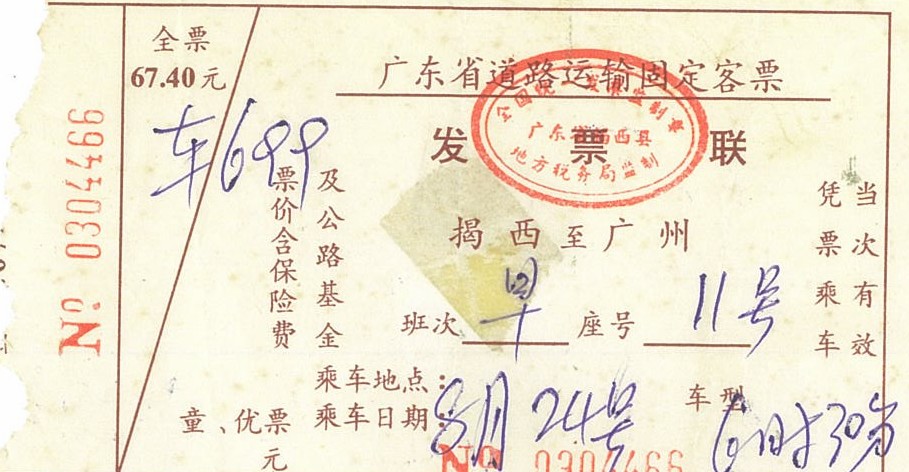 全票
67.40元
广东省道路运输固定客票
发票联
全国统一发票监制章
广东省揭西县
地方税务局监制
车699
No 0304466
票价含保险费
及公路基金
揭西至广州
凭票乘车
当次有效
班次 早 座号 11号
乘车地点：
乘车日期：8月24号
车型
6时30分
童、优票
元
No 0304466